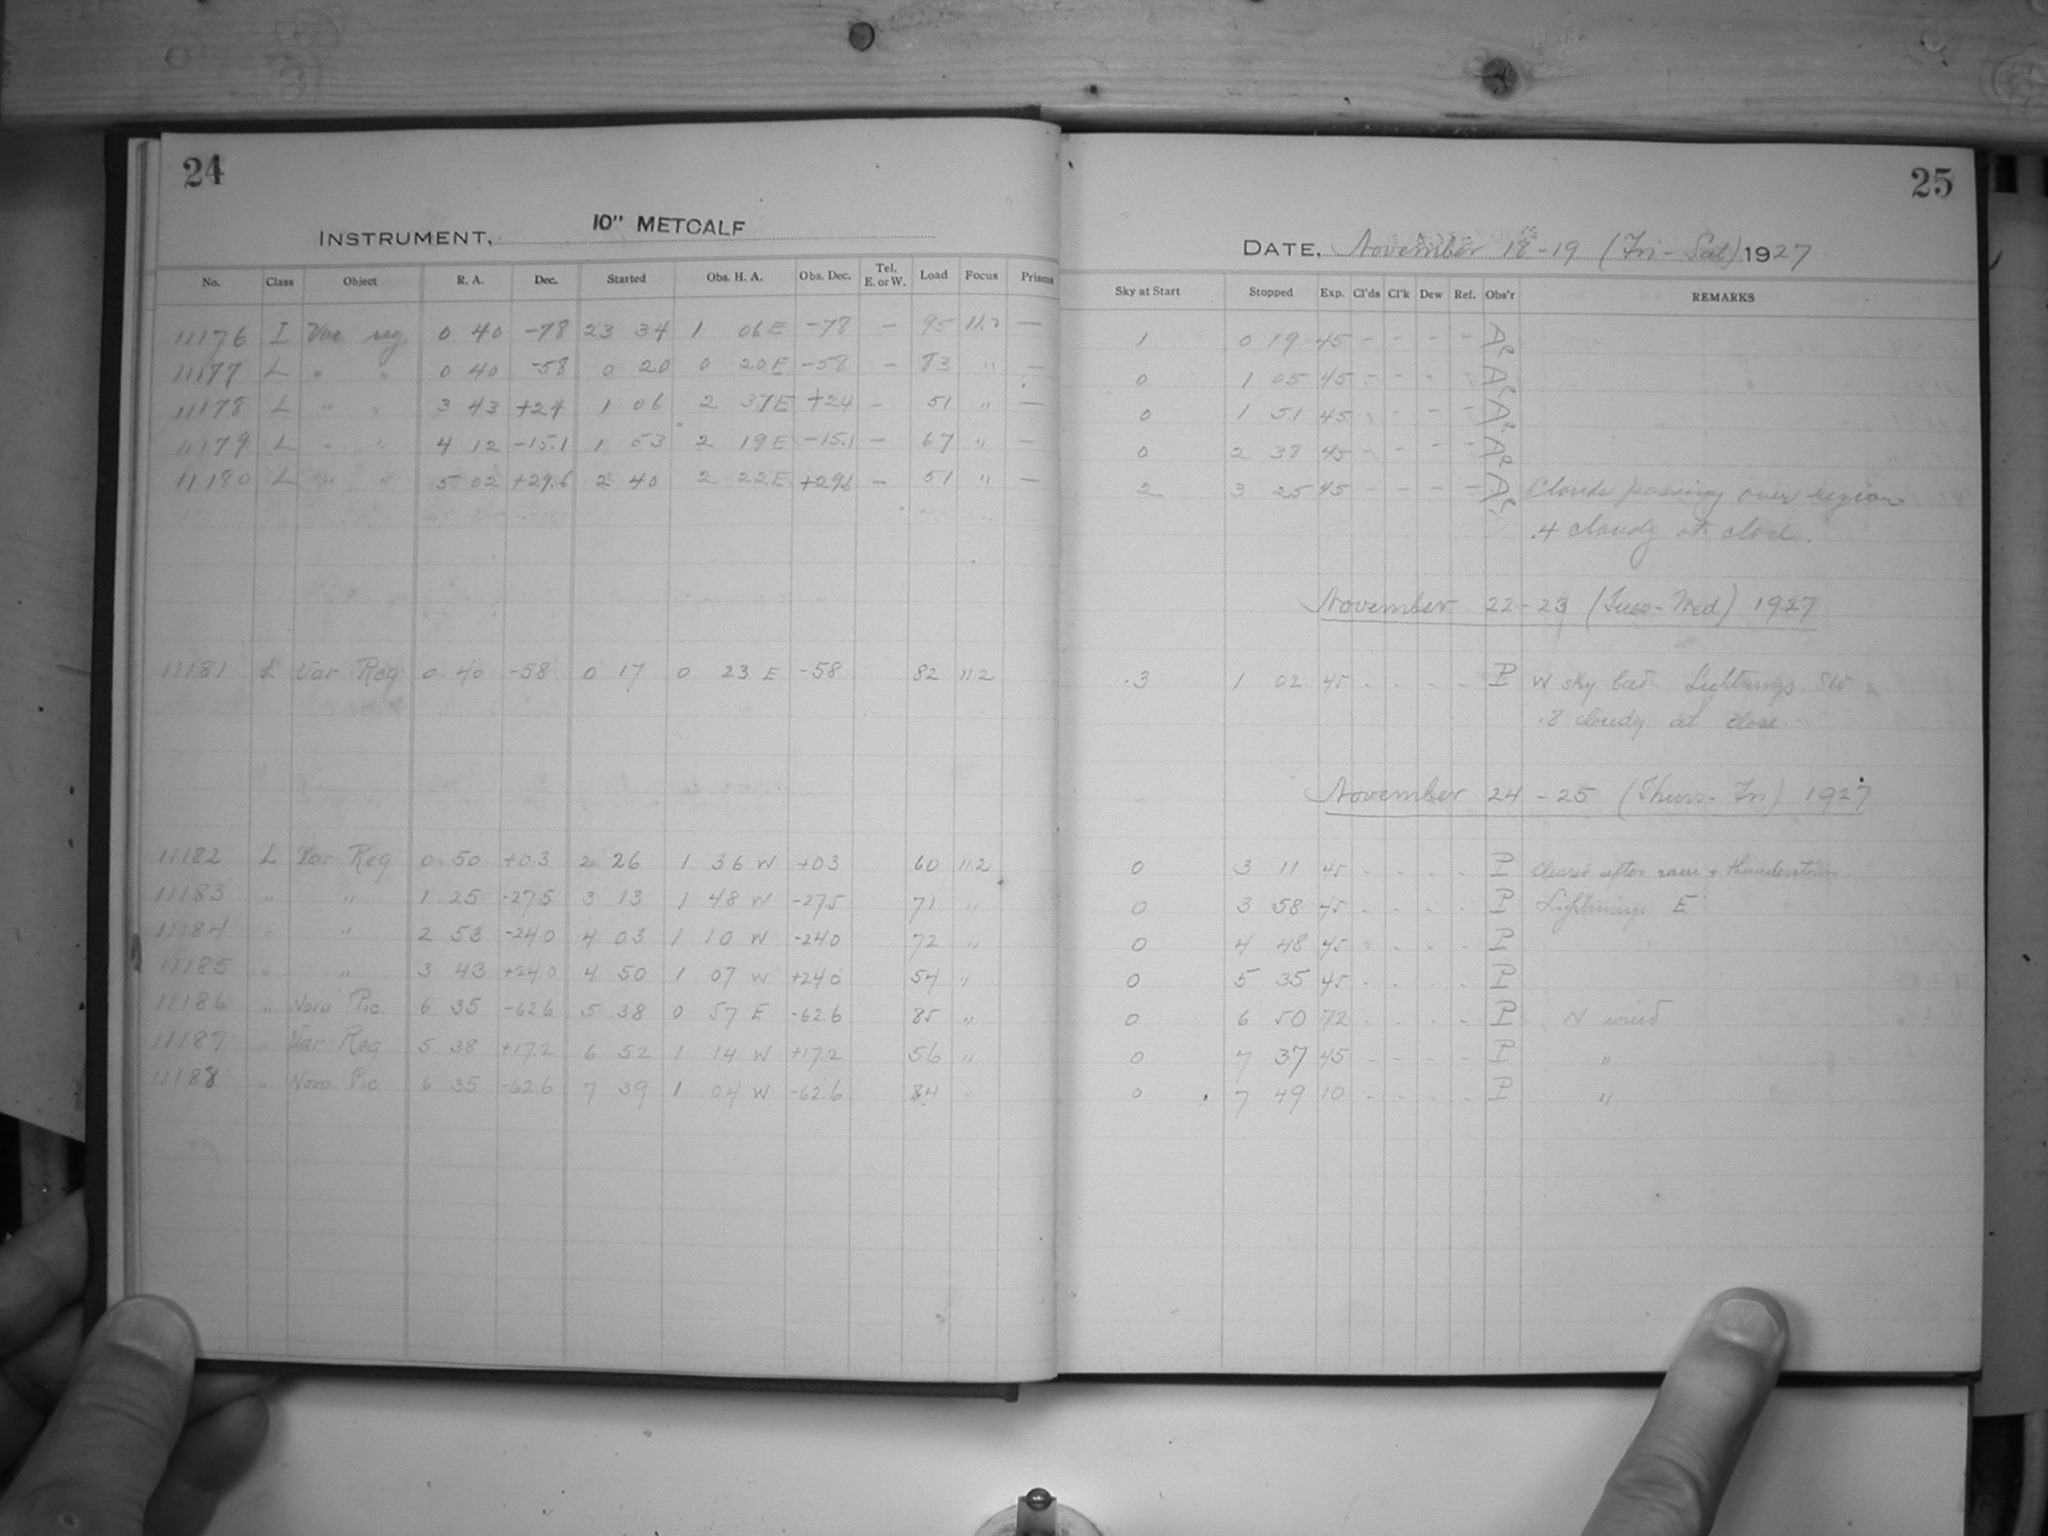 24
INSTRUMENT, 10" METCALF
No. Class Object R. A. Dec. Started Obs. H. A. Obs. Dec. Tel. E. or W. Load Focus Prisms
11176 I Var reg. 0 40 -78 23 34 1 06 E -78 — 95 11.2 —
11177 L " " 0 40 -58 0 20 0 20 E -58 — 83 " —
11178 L " " 3 43 +24 1 06 2 37 E +24 — 51 " —
11179 L " " 4 12 -15.1 1 53 2 19 E -15.1 — 67 " —
11180 L " " 5 02 +29.6 2 40 2 22 E +29.6 — 51 " —
11181 L Var Reg 0 40 -58 0 17 0 23 E -58 82 11.2
11182 L Var Reg 0 50 +03 2 26 1 36 W +03 60 11.2
11183 " " 1 25 -275 3 13 1 48 W -275 71 "
11184 " " 2 53 -240 4 03 1 10 W -240 72 "
11185 " " 3 43 +24.0 4 50 1 07 W +240 54 "
11186 " Nova Pic. 6 35 -626 5 38 0 57 E -62.6 85 "
11187 " Var Reg 5 38 +17.2 6 52 1 14 W +17.2 56 "
11188 " Nova Pic 6 35 -62.6 7 39 1 04 W -62.6 84 "
25
DATE, November 18-19 (Fri-Sat) 1927
Sky at Start Stopped Exp. Cl'ds Cl'k Dew Ref. Obs'r REMARKS
1 0 19 45 - - - - Ar
0 1 05 45 - - - - Ar
0 1 51 45 - - - - Ar
0 2 38 45 - - - - Ar
2 3 25 45 - - - - Ar Clouds passing over region
.4 cloudy at close.
November 22-23 (Tues-Wed) 1927
.3 1 02 45 - - - - P W sky bad. Lightnings SW
.8 cloudy at close.
November 24-25 (Thurs-Fri) 1927
0 3 11 45 - - - - P Cleared after rain + thunderstorm
0 3 58 45 - - - - P Lightnings E
0 4 48 45 - - - - P
0 5 35 45 - - - - P
0 6 50 72 - - - - P N wind
0 7 37 45 - - - - P "
0 7 49 10 - - - - P "